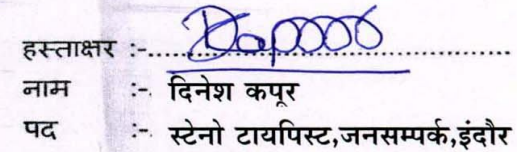 हस्ताक्षर :-..........................................
नाम :-. दिनेश कपूर
पद :-. स्टेनो टायपिस्ट,जनसम्पर्क,इंदौर